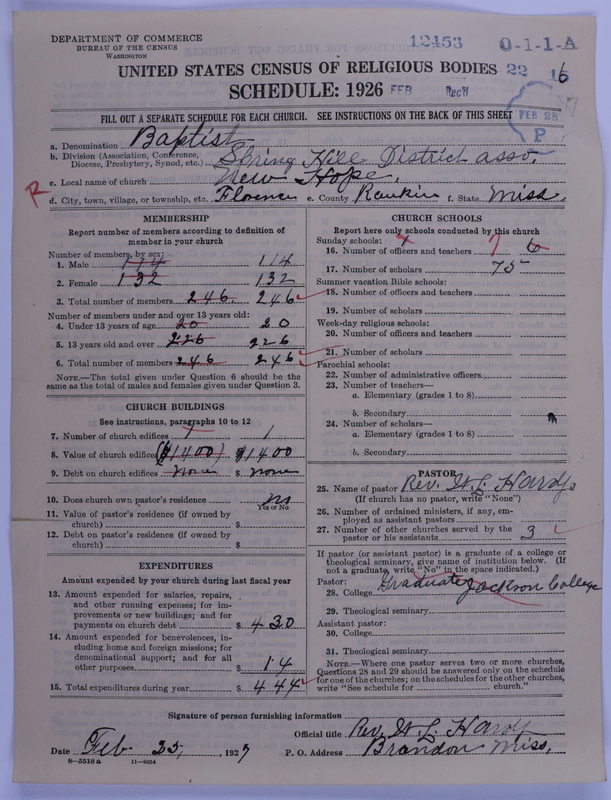 DEPARTMENT OF COMMERCE
BUREAU OF THE CENSUS
WASHINGTON
12453 0-1-1-A
UNITED STATES CENSUS OF RELIGIOUS BODIES 22 16
SCHEDULE: 1926 FEB REC'D
FILL OUT A SEPARATE SCHEDULE FOR EACH CHURCH. SEE INSTRUCTIONS ON THE BACK OF THIS SHEET
FEB 28
P
a. Denomination Baptist
b. Division (Association, Conference, Diocese, Presbytery, Synod, etc.) Spring Hill District asso.
c. Local name of church New Hope.
R
d. City, town, village, or township, etc. Florence e. County Rankin f. State Miss.
MEMBERSHIP
Report number of members according to definition of
member in your church
Number of members, by sex:
1. Male 114 114
2. Female 132 132
3. Total number of members 246 246
Number of members under and over 13 years old:
4. Under 13 years of age 20 20
5. 13 years old and over 226 226
6. Total number of members 246 246
NOTE.—The total given under Question 6 should be the
same as the total of males and females given under Question 3.
CHURCH BUILDINGS
See instructions, paragraphs 10 to 12
7. Number of church edifices 1 1
8. Value of church edifices ($1400) $1400
9. Debt on church edifices None $ none
10. Does church own pastor's residence no
Yes or No
11. Value of pastor's residence (if owned by
church) $
12. Debt on pastor's residence (if owned by
church) $
EXPENDITURES
Amount expended by your church during last fiscal year
13. Amount expended for salaries, repairs,
and other running expenses; for im-
provements or new buildings; and for
payments on church debt $ 430
14. Amount expended for benevolences, in-
cluding home and foreign missions; for
denominational support; and for all
other purposes $ 14
15. Total expenditures during year $ 444
CHURCH SCHOOLS
Report here only schools conducted by this church
Sunday schools:
16. Number of officers and teachers 7 6
17. Number of scholars 75
Summer vacation Bible schools:
18. Number of officers and teachers
19. Number of scholars
Week-day religious schools:
20. Number of officers and teachers
21. Number of scholars
Parochial schools:
22. Number of administrative officers
23. Number of teachers—
a. Elementary (grades 1 to 8)
b. Secondary
24. Number of scholars—
a. Elementary (grades 1 to 8)
b. Secondary
PASTOR
25. Name of pastor Rev. L. Hardy
(If church has no pastor, write "None")
26. Number of ordained ministers, if any, em-
ployed as assistant pastors
27. Number of other churches served by the
pastor or his assistants 3
If pastor (or assistant pastor) is a graduate of a college or
theological seminary, give name of institution below. (If
not a graduate, write "No" in the space indicated.)
Pastor:
28. College Graduate Jackson College
29. Theological seminary
Assistant pastor:
30. College
31. Theological seminary
NOTE.—Where one pastor serves two or more churches,
Questions 28 and 29 should be answered only on the schedule
for one of the churches; on the schedules for the other churches,
write "See schedule for church."
Signature of person furnishing information
Official title Rev. L. Hardy
Date Feb 25, 1927 P. O. Address Brandon Miss,
8—5518a 11—9054